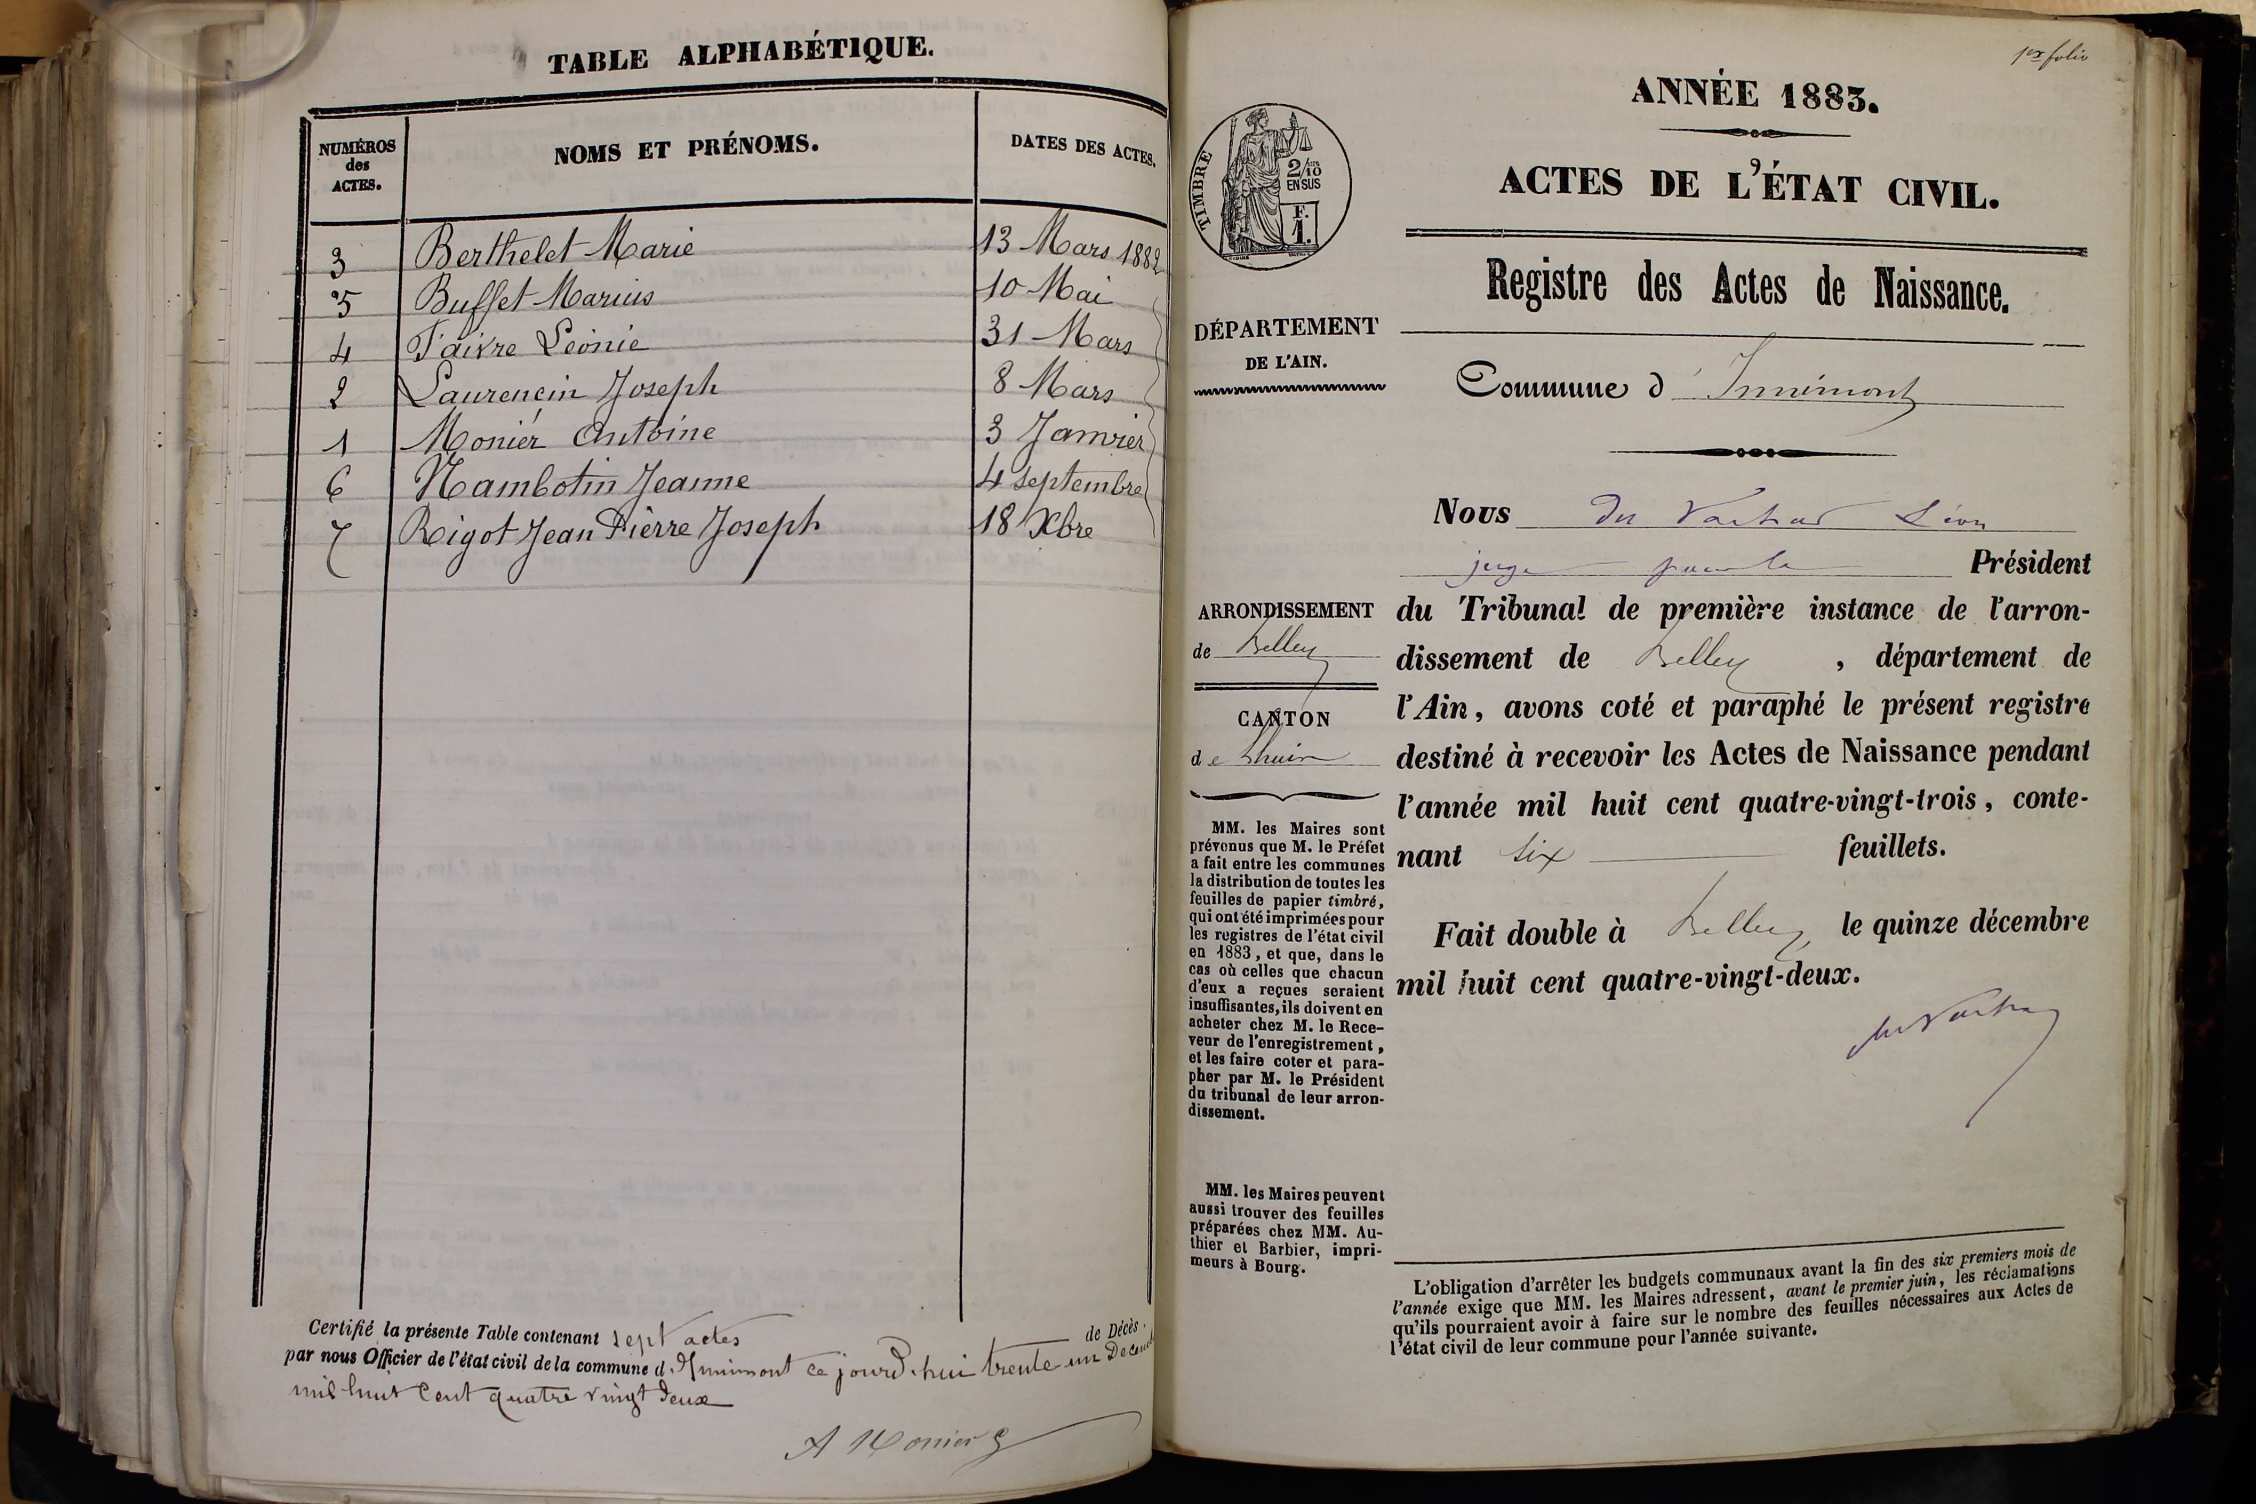 TABLE ALPHABÉTIQUE.
NUMÉROS des ACTES.
NOMS ET PRÉNOMS.
DATES DES ACTES.
3 Berthelet Marie 13 Mars 1882
5 Buffet Marius 10 Mai
4 Faivre Léonie 31 Mars
2 Laurencin Joseph 8 Mars
1 Monier Antoine 3 Janvier
6 Nambotin Jeanne 4 septembre
7 Rigot Jean Pierre Joseph 18 Xbre
Certifié la présente Table contenant sept actes de Décès.
par nous Officier de l'état civil de la commune d'Innimont ce jourd'hui trente un Décemb
mil huit cent quatre vingt deux
A Monier
1er folio
ANNÉE 1883.
ACTES DE L'ÉTAT CIVIL.
TIMBRE
2/10 EN SUS
F. 1.
Registre des Actes de Naissance.
DÉPARTEMENT
DE L'AIN.
Commune d'Innimont
Nous du Vachat Léon
juge Président
ARRONDISSEMENT
de Belley
CANTON
de Lhuis
du Tribunal de première instance de l'arron-
dissement de Belley, département de
l'Ain, avons coté et paraphé le présent registre
destiné à recevoir les Actes de Naissance pendant
l'année mil huit cent quatre-vingt-trois, conte-
nant six feuillets.
Fait double à Belley, le quinze décembre
mil huit cent quatre-vingt-deux.
du Vachat
MM. les Maires sont
prévenus que M. le Préfet
a fait entre les communes
la distribution de toutes les
feuilles de papier timbré,
qui ont été imprimées pour
les registres de l'état civil
en 1883, et que, dans le
cas où celles que chacun
d'eux a reçues seraient
insuffisantes, ils doivent en
acheter chez M. le Rece-
veur de l'enregistrement,
et les faire coter et para-
pher par M. le Président
du tribunal de leur arron-
dissement.
MM. les Maires peuvent
aussi trouver des feuilles
préparées chez MM. Au-
thier et Barbier, impri-
meurs à Bourg.
L'obligation d'arrêter les budgets communaux avant la fin des six premiers mois de
l'année exige que MM. les Maires adressent, avant le premier juin, les réclamations
qu'ils pourraient avoir à faire sur le nombre des feuilles nécessaires aux Actes de
l'état civil de leur commune pour l'année suivante.